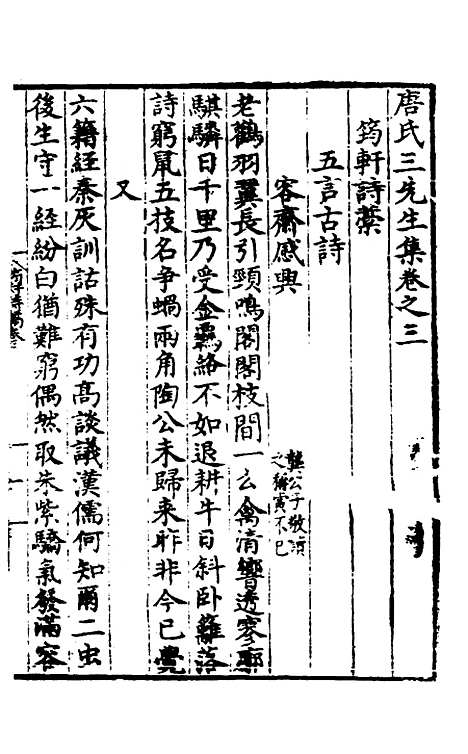 唐氏三先生集卷之三
筠軒詩藁
五言古詩
容齋感興
老鶴羽翼長引頸鳴閣閣枝間一么禽清響透寥廓
騏驎日千里乃受金羈絡不如退耕牛日斜卧籬落
詩窮鼠五技名爭蝸兩角陶公未歸來昨非今已覺
又
六籍經秦灰訓詁殊有功高談議漢儒何知爾二虫
後生守一經紛白猶難窮偶然取朱紫驕氣發滿容